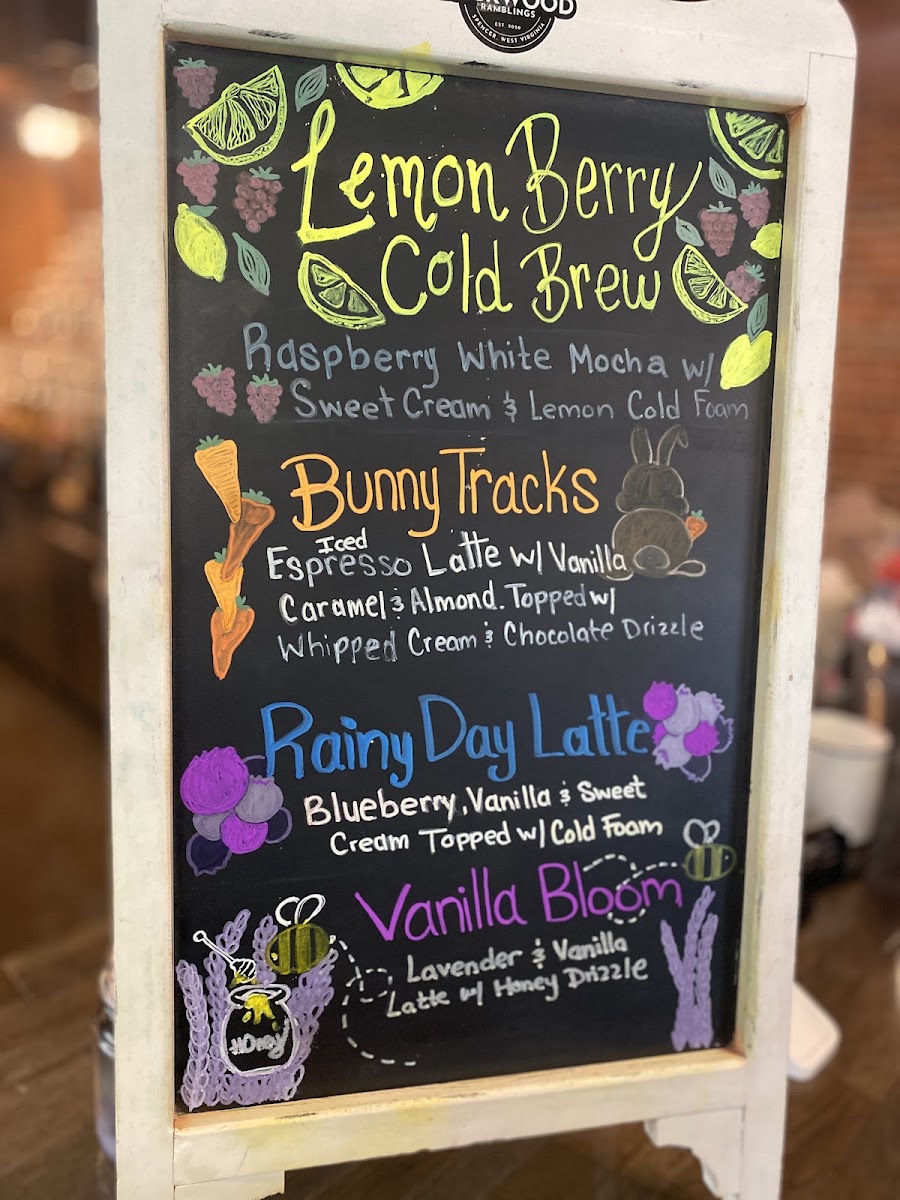 RAMBLINGS
EST. 2020
SPENCER, WEST VIRGINIA
Lemon Berry
Cold Brew
Raspberry White Mocha w/
Sweet Cream & Lemon Cold Foam
Bunny Tracks
Iced
Espresso Latte w/ Vanilla
Caramel & Almond. Topped w/
Whipped Cream & Chocolate Drizzle
Rainy Day Latte
Blueberry, Vanilla & Sweet
Cream Topped w/ Cold Foam
Vanilla Bloom
Lavender & Vanilla
Latte w/ Honey Drizzle
HOney